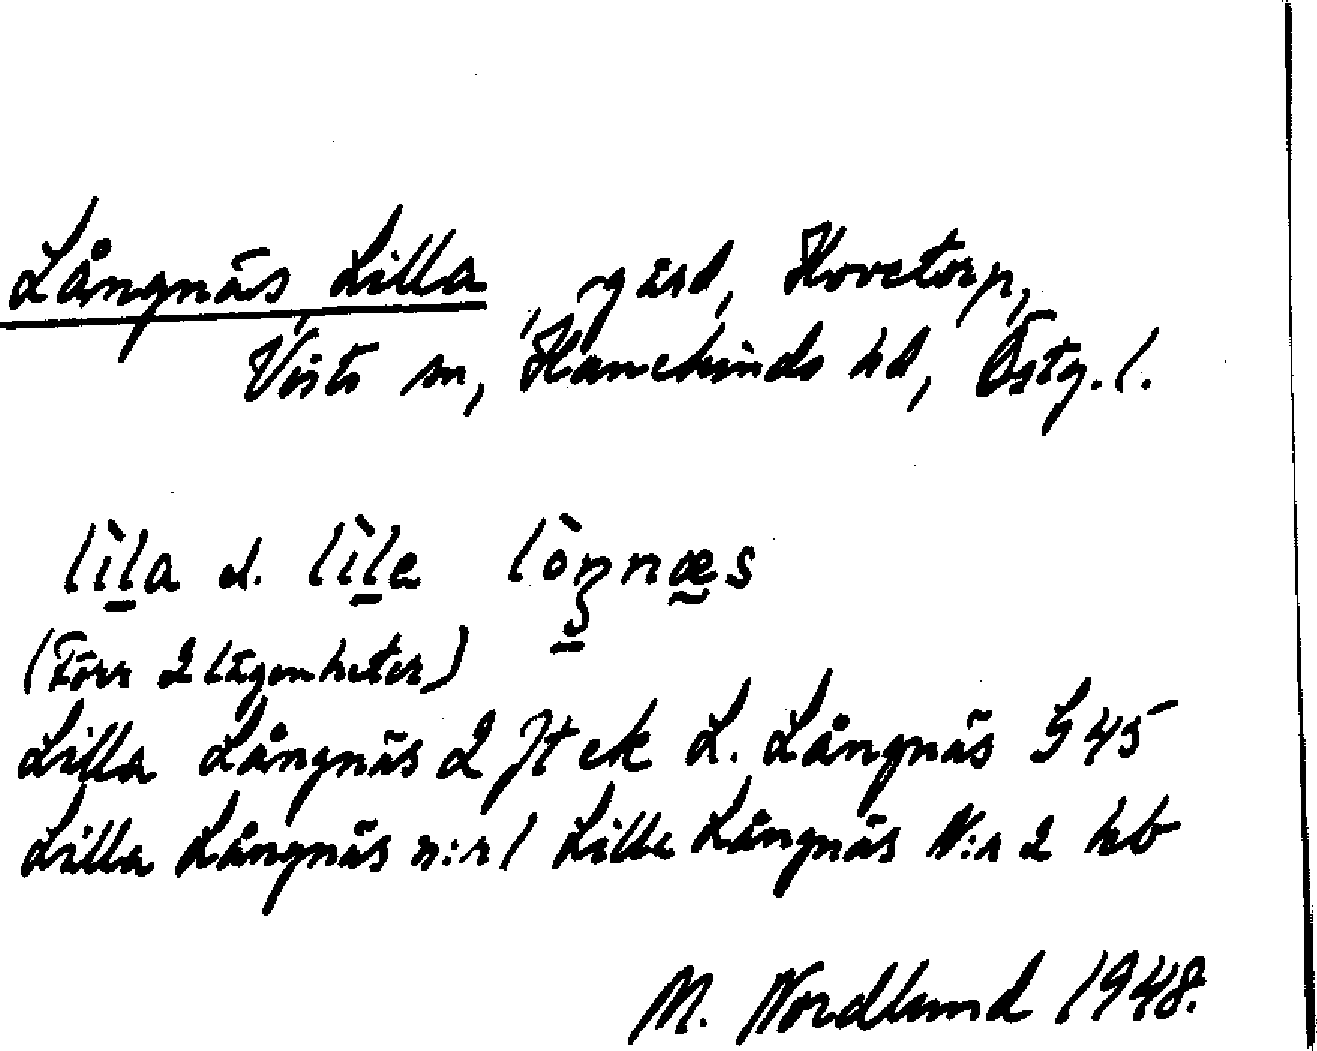 Långnäs, Lilla, gård, Hovetorp,
Vists sn, Hanekinds hd, Östg. l.
lìla el. lìle lòŋnæs
(Förr 2 lägenheter)
Lilla Långnäs 2 Jt ek L. Långnäs G 45
Lilla Långnäs n:r 1 Lilla Långnäs N:r 2 hb
M. Nordlund 1948.